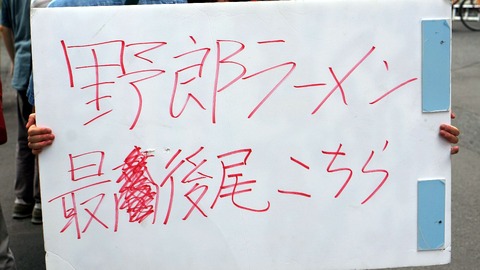 野郎ラーメン
最後尾こちら